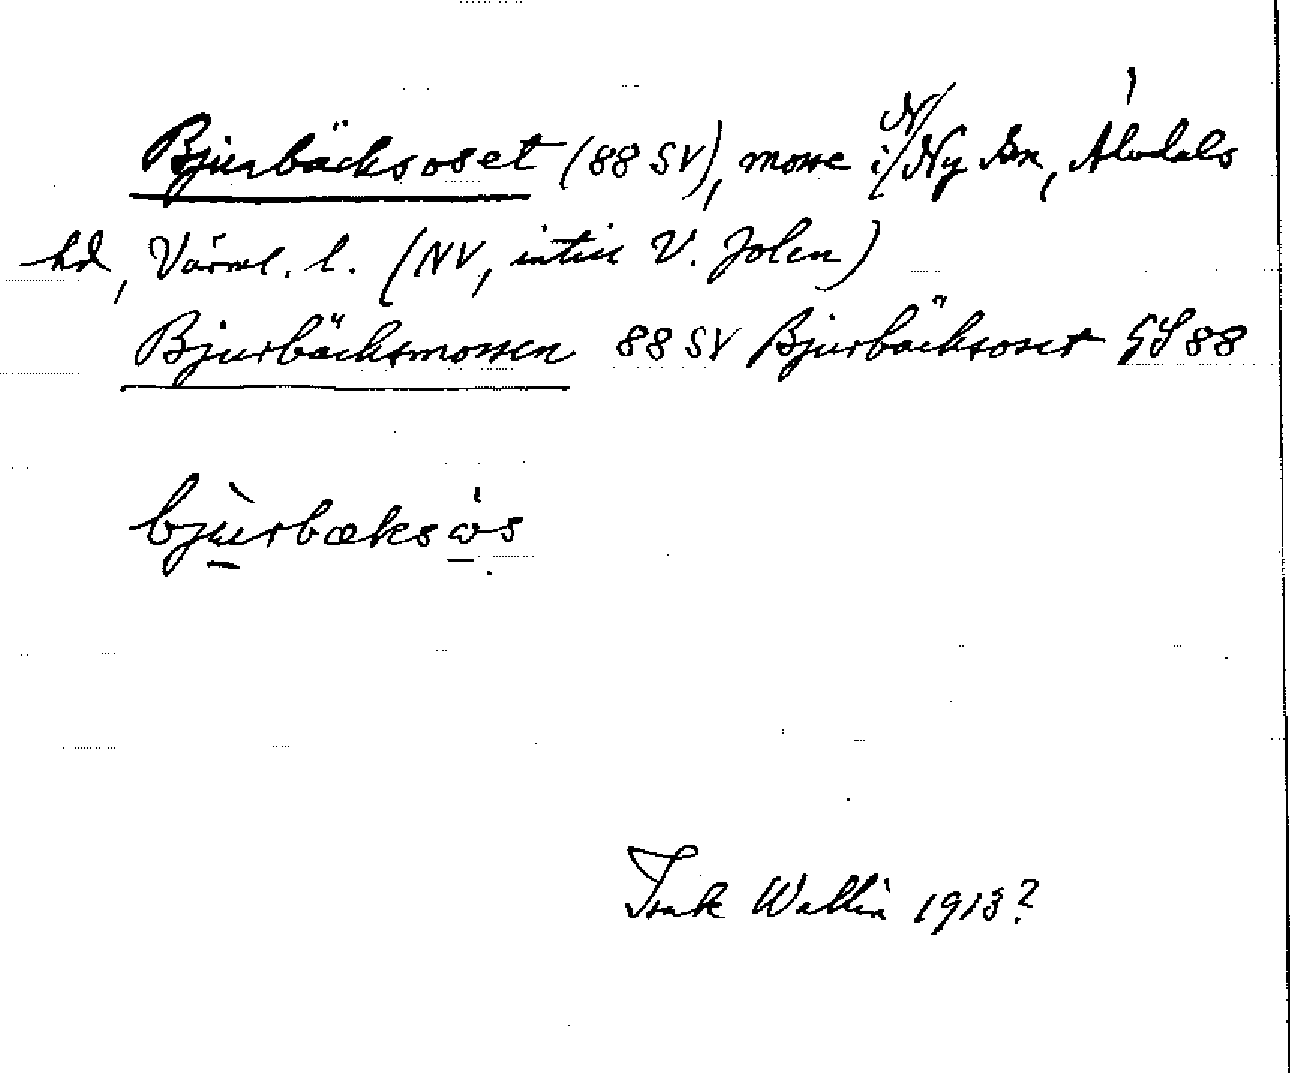 Bjurbäcksoset (88 SV), mosse i N/Ny sn, Älvdals
hd, Värml. l. (NV, intill V. Jolen)
Bjurbäcksmossen 88 SV Bjurbäcksoset GS 88
bjùrbæksòs
Isak Wallin 1913?